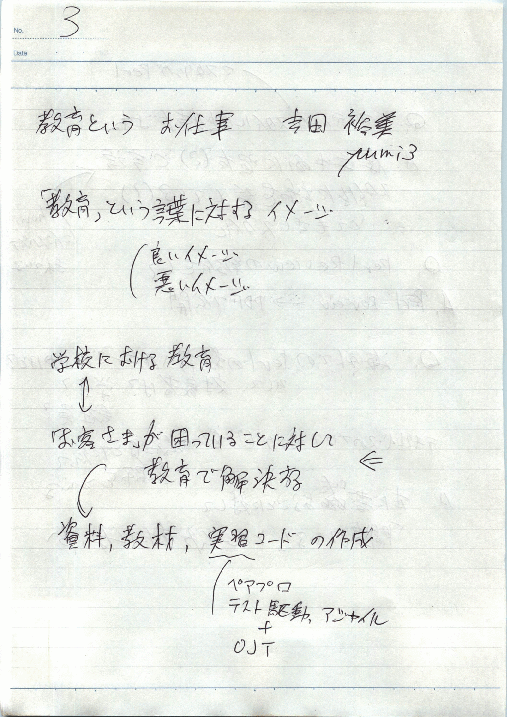 No. 3
Date
教育という お仕事 吉田 裕美
yumi3
「教育」という言葉に対する イメージ
良いイメージ
悪いイメージ
学校における 教育
↕
「お客さま」が 困っていることに対して
教育で解決する ←
資料, 教材, 実習コード の作成
ペアプロ
テスト駆動, アジャイル
+
OJT